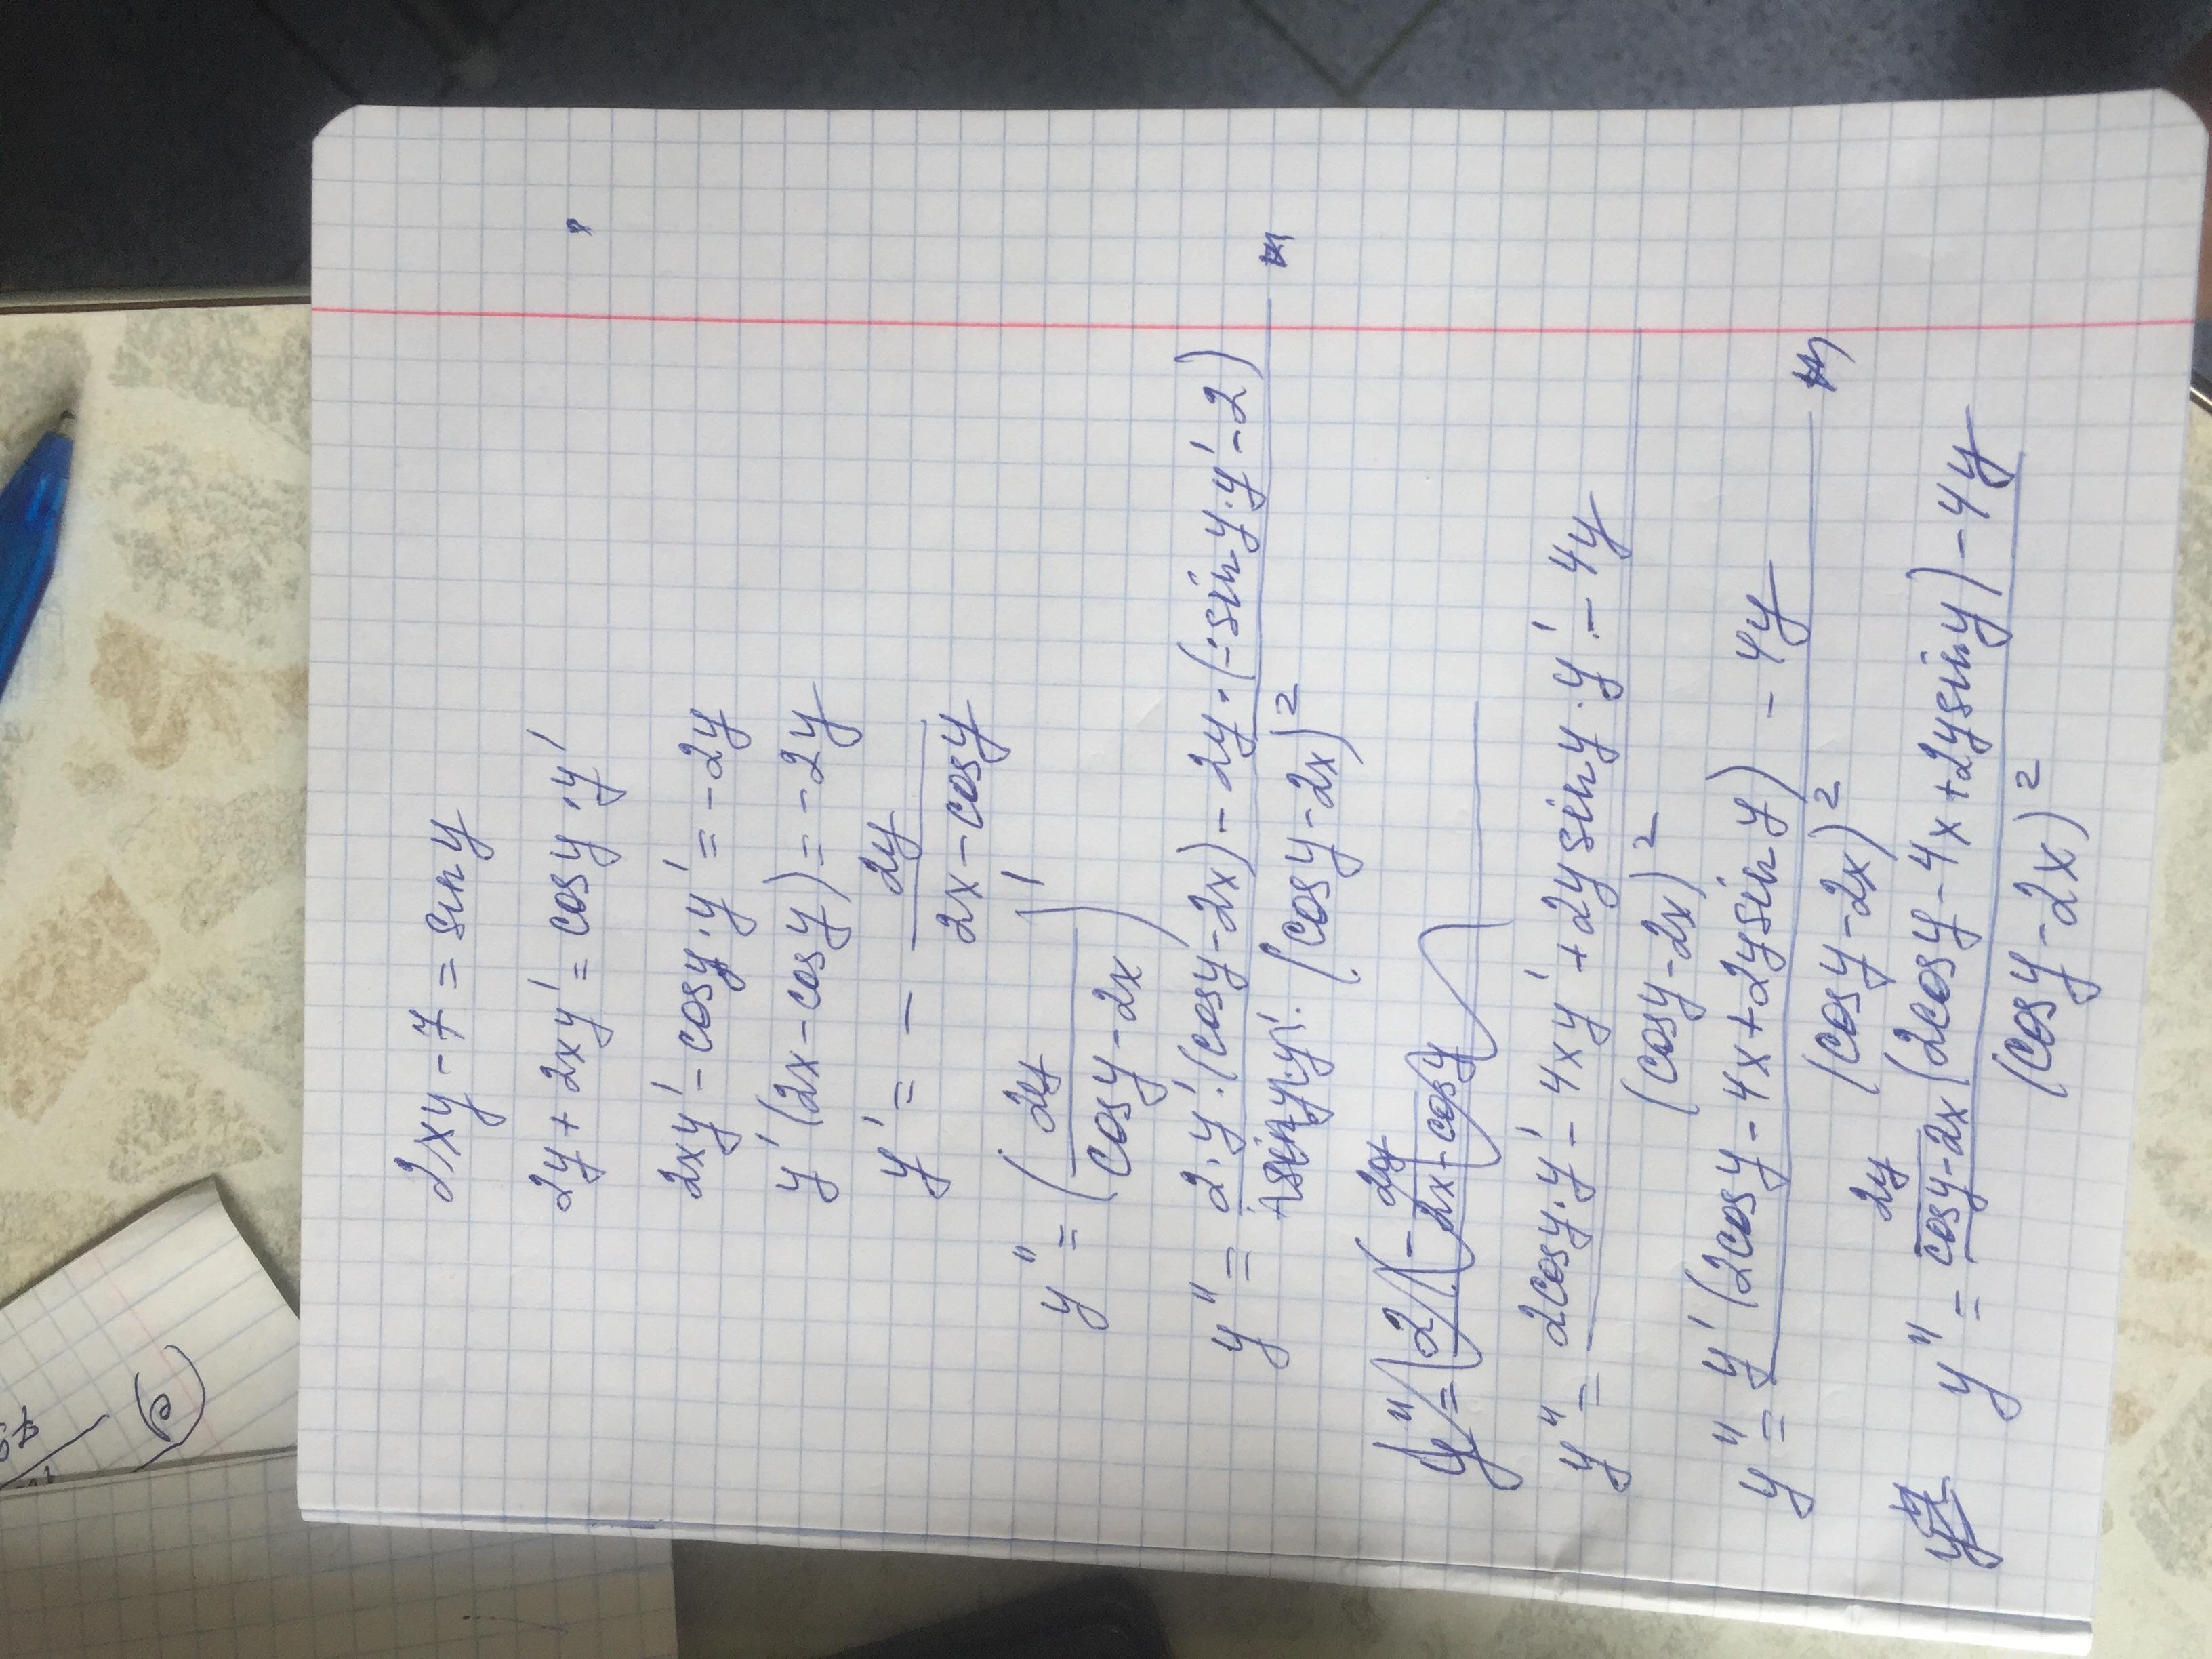 2xy - 7 = sin y
2y + 2xy' = cos y · y'
2xy' - cos y · y' = -2y
y' (2x - cos y) = -2y
y' = - 2y / (2x - cos y)
y'' = (2y / (cos y - 2x))'
y'' = (2 · y' · (cos y - 2x) - 2y · (-sin y · y' - 2)) / (cos y - 2x)²
y'' = (2cos y · y' - 4xy' + 2y sin y · y' - 4y) / (cos y - 2x)²
y'' = (y' (2cos y - 4x + 2y sin y) - 4y) / (cos y - 2x)²
y'' = (2y / (cos y - 2x) (2cos y - 4x + 2y sin y) - 4y) / (cos y - 2x)²